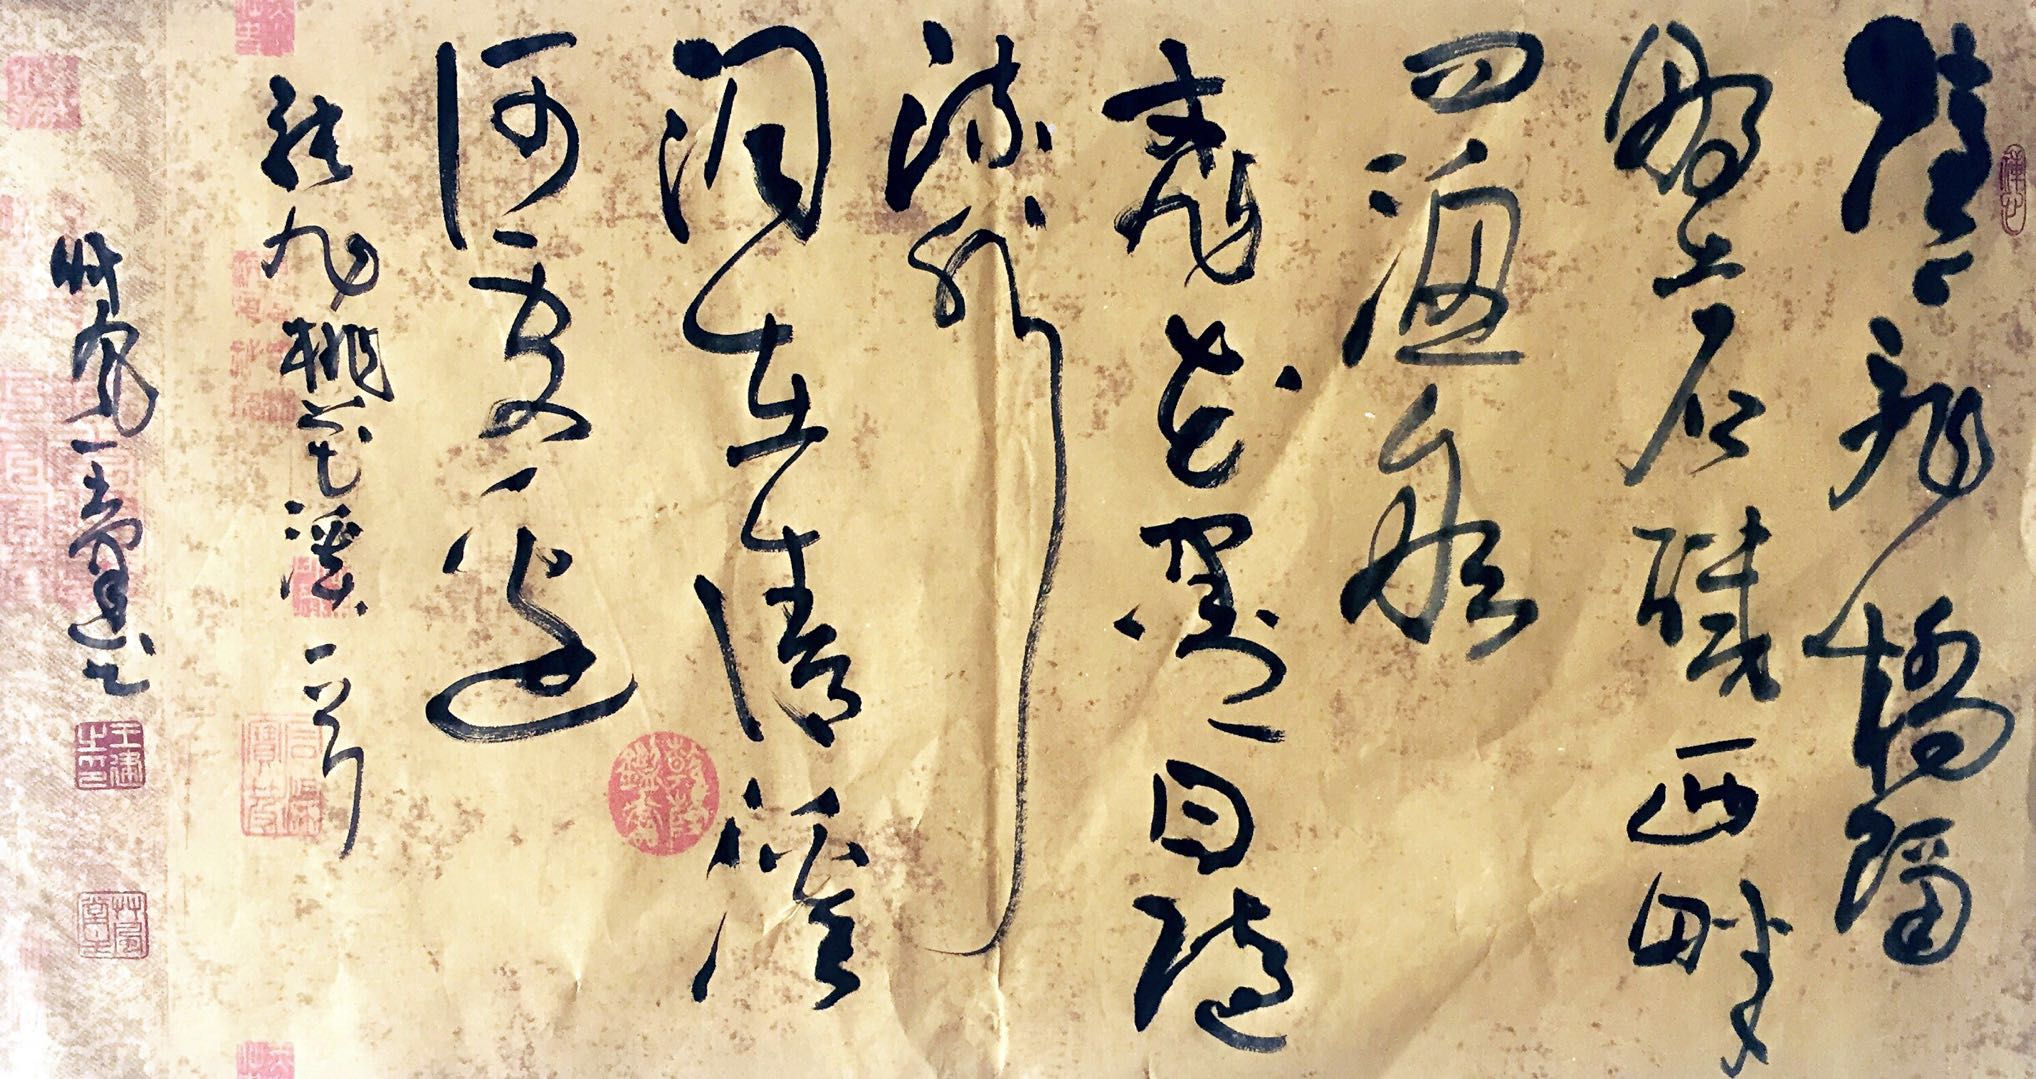 隱〻飛橋隔
野烟石磯西畔
問漁船
桃花盡日隨
流水
洞在清溪
何處邊
張旭桃花溪一首
王建之印